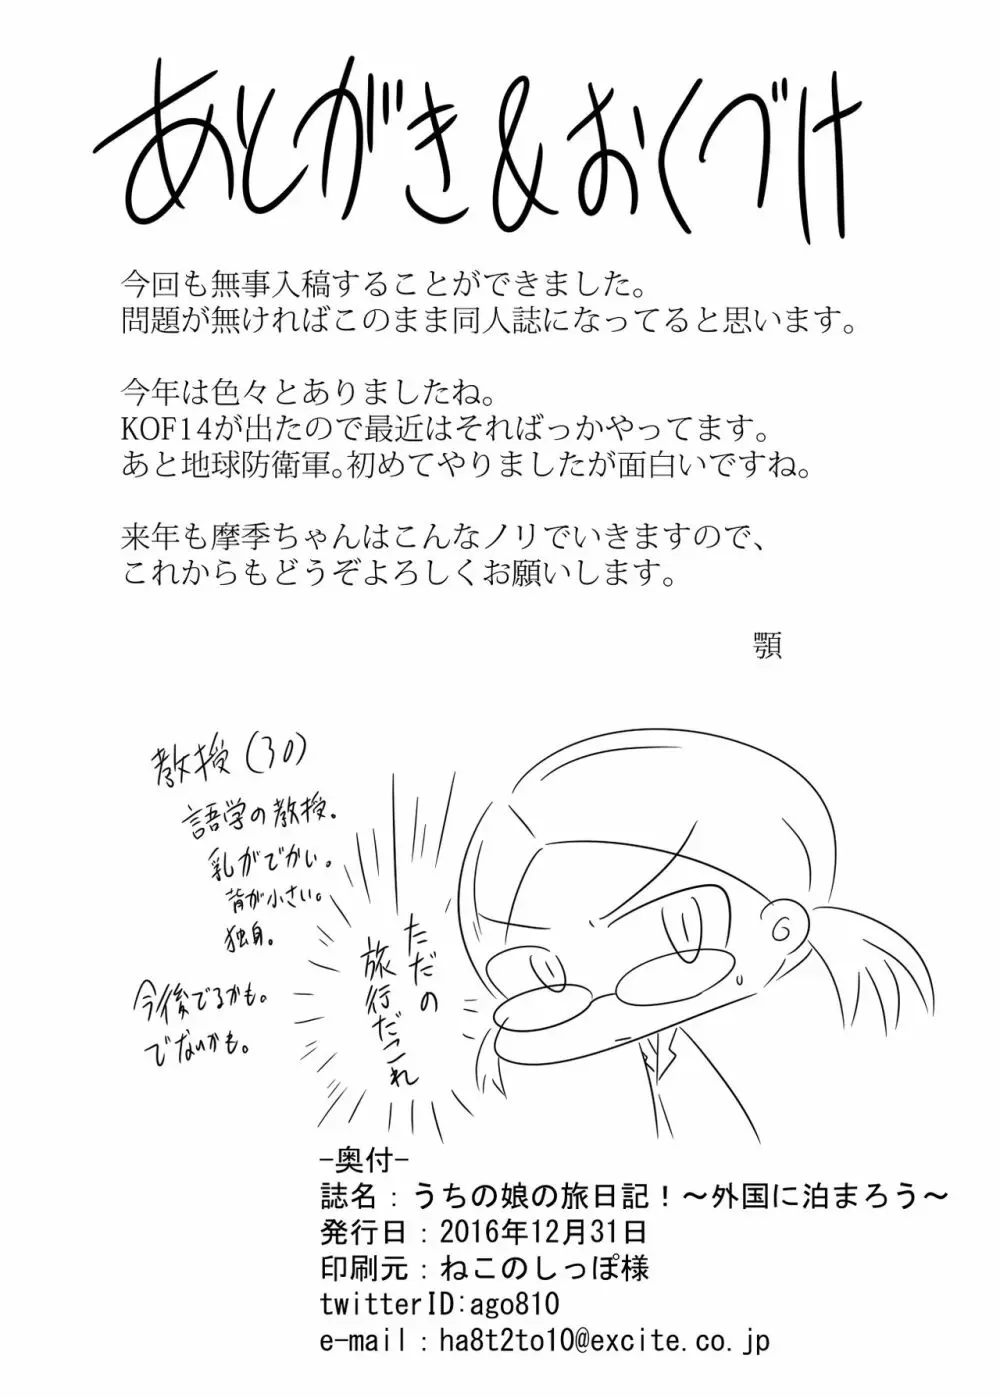 あとがき&おくづけ
今回も無事入稿することができました。
問題が無ければこのまま同人誌になってると思います。
今年は色々とありましたね。
KOF14が出たので最近はそればっかやってます。
あと地球防衛軍。初めてやりましたが面白いですね。
来年も摩季ちゃんはこんなノリでいきますので、
これからもどうぞよろしくお願いします。
顎
教授(30)
語学の教授。
乳がでかい。
背が小さい。
独身。
今後でるかも。
でないかも。
ただの
旅行だこれ
-奥付-
誌名：うちの娘の旅日記！～外国に泊まろう～
発行日：2016年12月31日
印刷元：ねこのしっぽ様
twitterID:ago810
e-mail：ha8t2to10@excite.co.jp